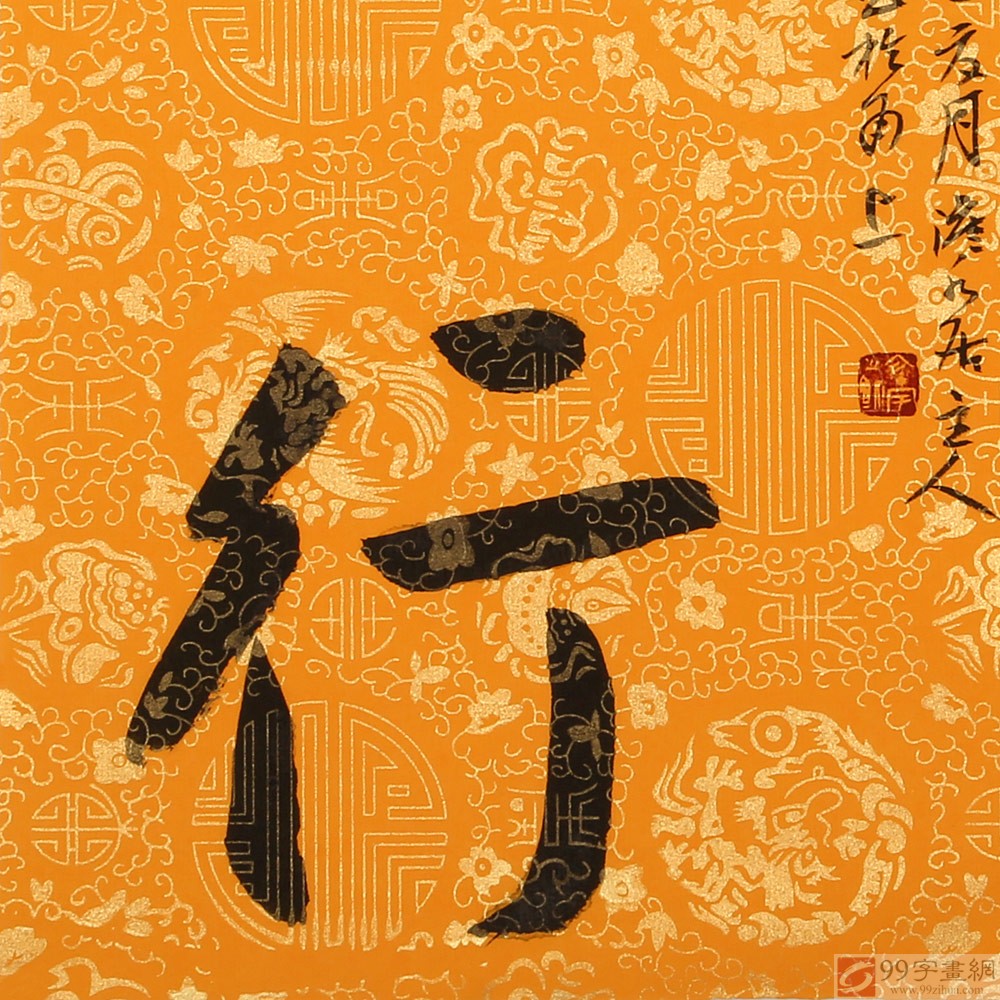 月 居主人
於甬上
行
99字畫網
www.99zihua.com